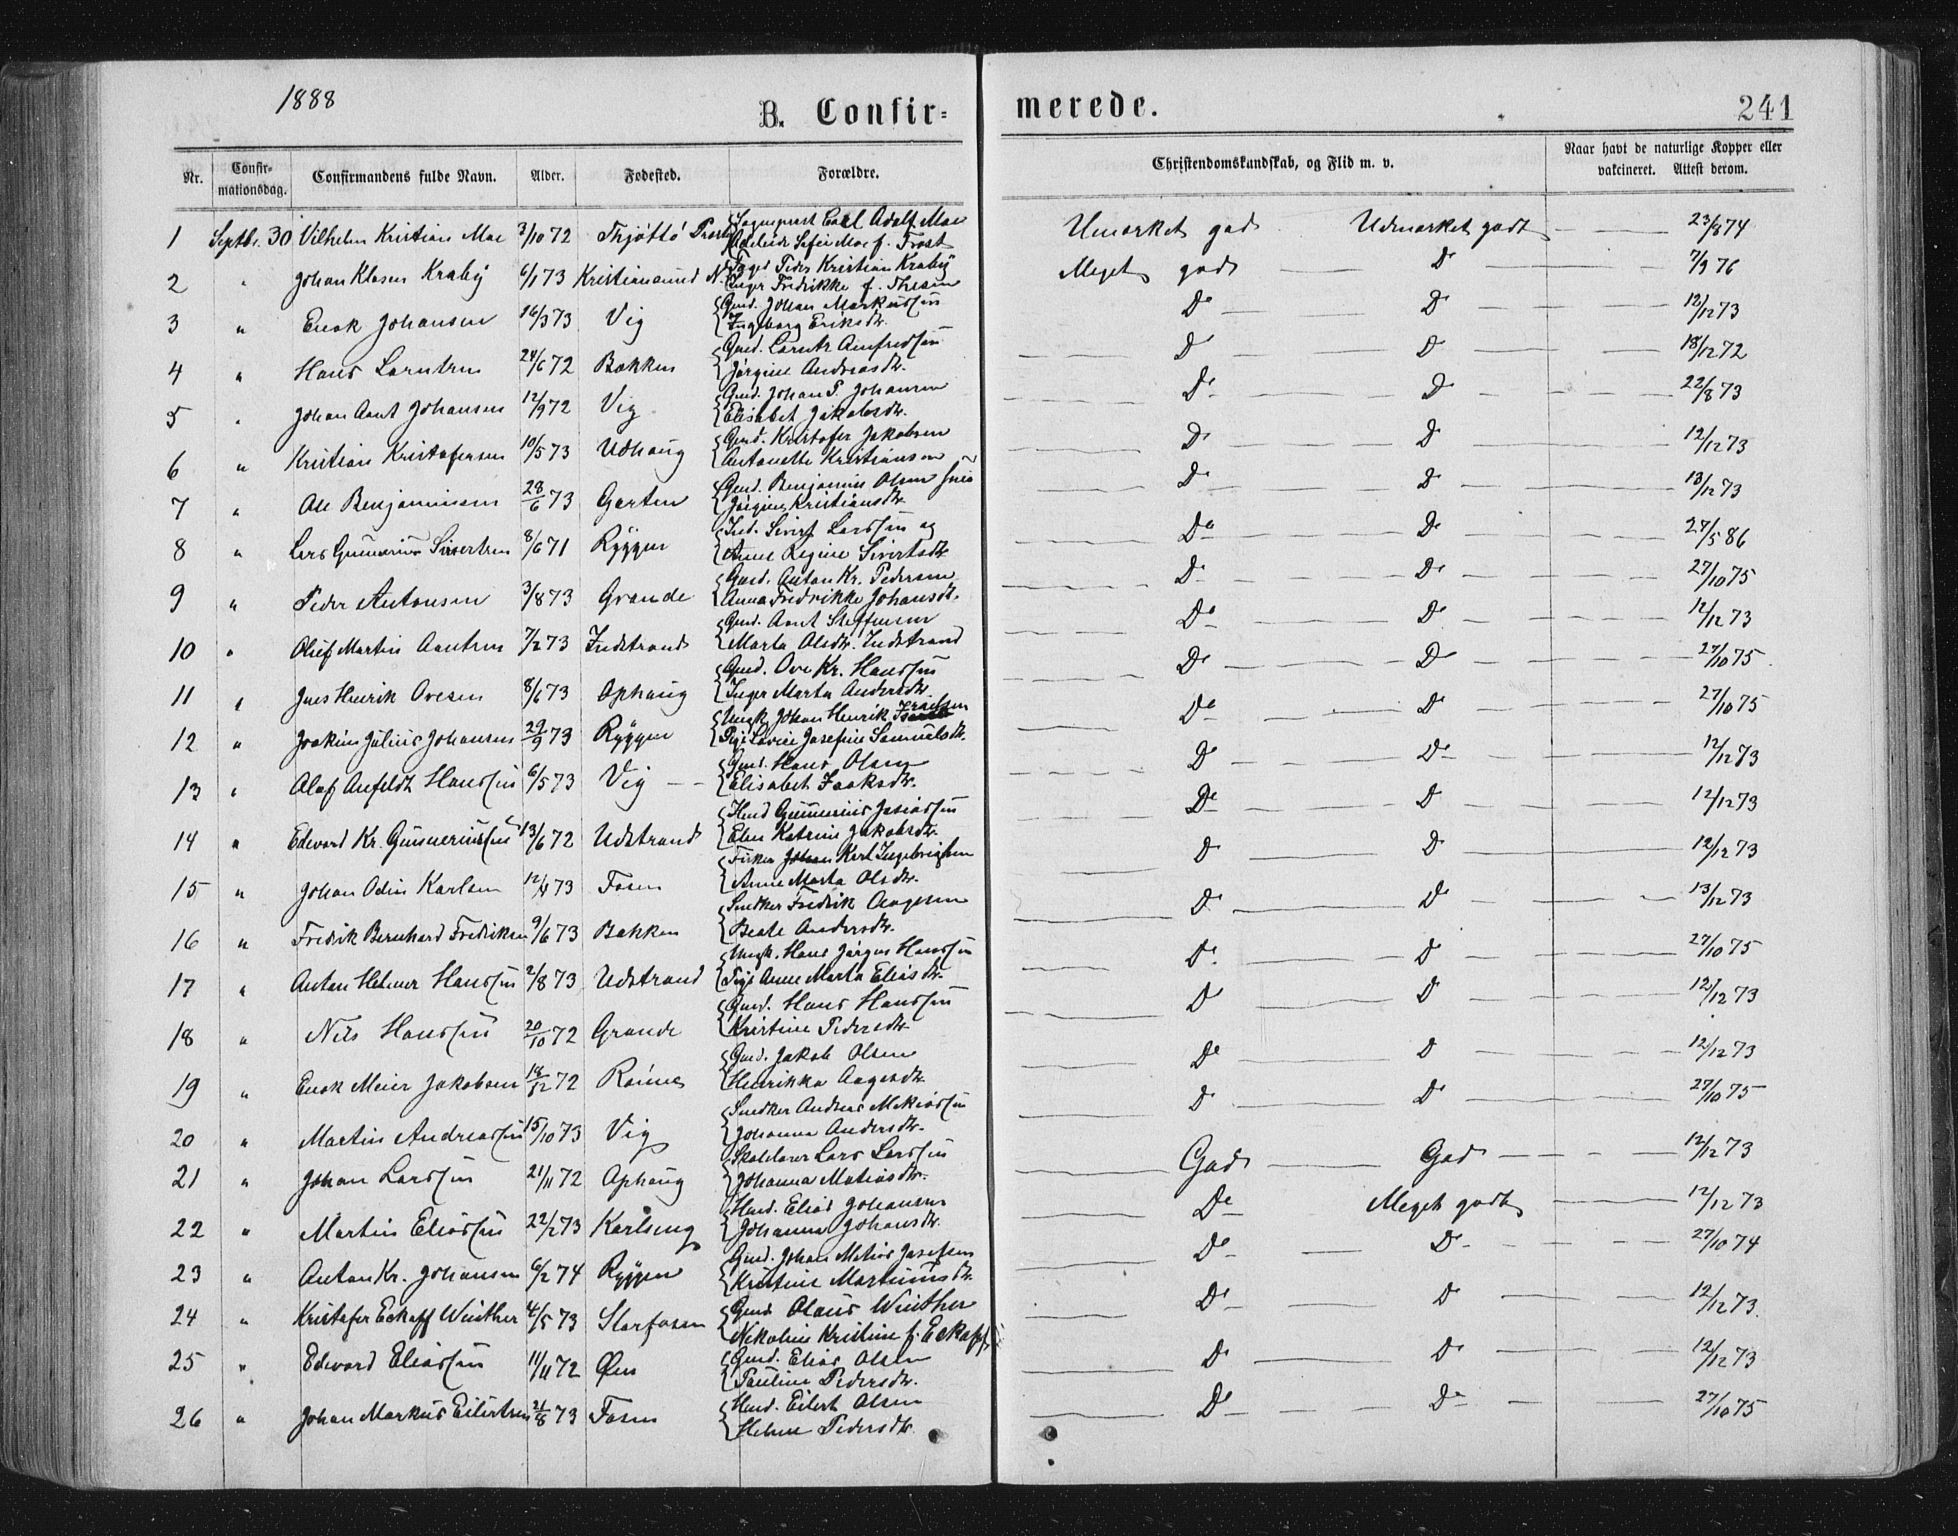 1888
B. Confirmerede.
241
Nr.
Confirmationsdag.
Confirmandens fulde Navn.
Alder.
Fødested.
Forældre.
Christendomskundskab, og Flid m. v.
Naar havt de naturlige Kopper eller vakcineret. Attest derom.
1 Septbr. 30 Vilhelm Kristian Moe 3/10 72 Thjöttö Sogneprest Carl Adolf Moe
Adelaide Sofie Moe f. Frost
Umærket godt Udmærket godt 23/8 74
2 " Johan Klasen Kraby 6/1 73 Kristiansund N. Foged Peder Kristian Kraby
Inger Fredrikke f.
Meget godt D° 7/9 76
3 " Enok Johansen 16/3 73 Vig Gmd. Johan Markussen
Ingeborg Eriksdtr.
D° D° 12/12 73
4 " Hans Lorntsen 24/6 72 Bakken Gmd. Lornts Amfredsen
Jørgine Andreasdtr.
D° D° 18/12 72
5 " Johan Arnt Johansen 12/9 72 Vig Gmd. Johan P. Johansen
Elisabet Jakobsdtr.
D° D° 22/8 73
6 " Kristian Kristofersen 10/5 73 Udhaug Gmd. Kristofer Jakobsen
Antonette Kristiansen
D° D° 12/12 73
7 " Ole Benjaminsen 28/6 73 Garten Gmd. Benjamin Olsen
Jørgine Kristiansdtr.
D° D° 13/12 73
8 " Lars Gunnerius Sivertsen 8/6 71 Ryggen Ind. Sivert Larssen og
Anne Regine Sivertsdtr.
D° D° 27/5 86
9 " Peder Antonsen 3/8 73 Grande Gmd. Anton Kr. Pedersen
Anna Fredrikke Johansdtr.
D° D° 27/10 75
10 " Oluf Martin Arntsen 7/2 73 Indstrand Gmd. Arnt Steffensen
Marta Olsdtr. Indstrand
D° D° 12/12 73
11 " Jens Henrik Ovesen 8/6 73 Ophaug Gmd. Ove Kr. Hanssen
Inger Marta Andersdtr.
D° D° 27/10 75
12 " Joakim Julius Johansen 29/9 73 Ryggen Ungk. Johan Henrik Israelsen
Pige Lovise Josefine Samuelsdtr.
D° D° 27/10 75
13 " Olaf Anfeldt Hanssen 6/5 73 Vig Gmd. Hans Olsen
Elisabet Isaksdtr.
D° D° 12/12 73
14 " Edvard Kr. Gunneriussen 13/6 72 Udstrand Hmd Gunnerius Josiassen
Elen Katrine Jakobsdtr.
D° D° 12/12 73
15 " Johan Odin Karlsen 12/4 73 Fosen Fisker Johan Karl Ingebrigtsen
Anne Marta Olsdtr.
D° D° 12/12 73
16 " Fredrik Bernhard Fredriksen 9/6 73 Bakken Snedker Fredrik Aagesen
Beate Andersdtr.
D° D° 13/12 73
17 " Anton Helmer Hanssen 2/8 73 Udstrand Ungk. Hans Jörgen Hanssen
Pige Anne Marta Eliasdtr.
D° D° 27/10 75
18 " Nils Hanssen 20/10 72 Grande Gmd. Hans Hanssen
Kristine Pedersdtr.
D° D° 12/12 73
19 " Enok Meier Jakobsen 18/12 72 Gmd. Jakob Olsen
Henrikka Aagesdtr.
D° D° 12/12 73
20 " Martin Andreassen 15/10 73 Vig Snedker Andreas Mekiassen
Johanna Andersdtr.
D° D° 27/10 75
21 " Johan Larssen 21/11 72 Ophaug Skolelærer Lars Larssen
Johanna Matiasdtr.
Godt Godt 12/12 73
22 " Martin Eliassen 22/2 73 Karlseng Hmd. Elias Johansen
Johanna Johansdtr.
D° Meget godt 12/12 73
23 " Anton Kr. Johansen 6/2 74 Ryggen Gmd. Johan Matias Josefsen
Kristine Martinusdtr.
D° D° 27/10 74
24 " Kristofer Eckoff Winther 4/5 73 Storfosen Gmd Olaus Winther
Nikoline Kristine f. Eckoff
D° D° 12/12 73
25 " Edvard Eliassen 11/11 72 Øen Gmd. Elias Olsen
Pauline Pedersdtr.
D° D° 12/12 73
26 " Johan Markus Eilertsen 21/8 73 Fosen Hmd. Eilert Olsen
Helene Pedersdtr.
D° D° 27/10 75